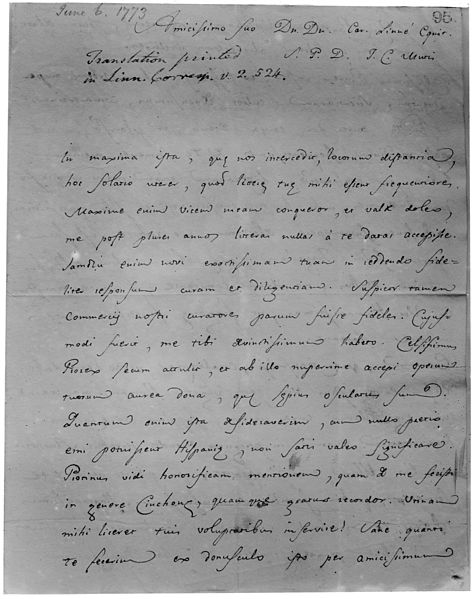 June 6. 1773
95
Amicissimo suo Dn. Dn. Car. Linné Equit.
Translation printed S. P. D. J. C. Mutis
in Linn. Corresp. v. 2. 524.
In maxima ista, quę nos intercedit, locorum distantia,
hoc solatio uterer, quod literę tuę mihi essent frequentiores.
Maxime enim vicem meam conqueror, et valde doleo,
me post plures annos litteras nullas à te datas accepisse.
enim novi exactissimam tuam in reddendo fide=
liter responsum curam et diligentiam. Suspicor tamen
commercij nostri curatores parum fuisse fideles. Cujus
modi fuerit, me tibi devinctissimum habeto. Celsissimus
Prorex secum attulit, et ab illo nuperrime accepi operum
tuorum aurea dona, quę sępius osculatus sum.
Quantum enim ista desideraverim, cum nullo pretio
emi potuissent Hispanię, non satis valeo significare.
Protinus vidi honorificam mentionem, quam de me fecisti
in genere Cinchonę, quamque gratus recordor. Utinam
mihi liceret tuis voluptatibus inservire! Sane quanti
te fecerim ex donusculo isto per amicissimum